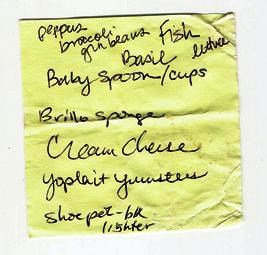 peppers
broccoli
grn beans Fish
Basil
Baby Spoon/cups
Brillo Sponge
Cream Cheese
Yoplait Yumsters
Shoepet-blk
lighter